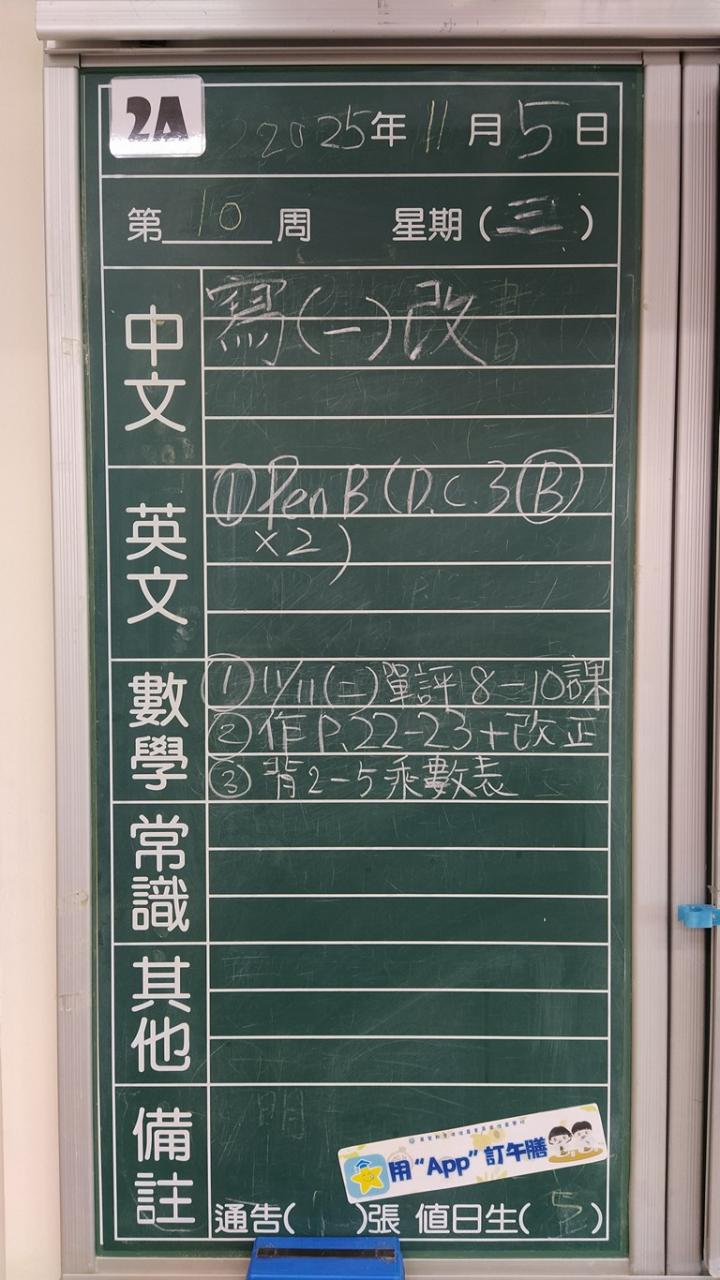 2A
2025年 11月5日
第10周 星期(三)
中文
寫(一)改
英文
①Pen B (D.C.3Ⓑ
×2)
數學
①11/11(二)單評18-10課
②作P.22-23+改正
③背2-5乘數表
常識
其他
備註
用“App”訂午膳
通告( )張 值日生(5)